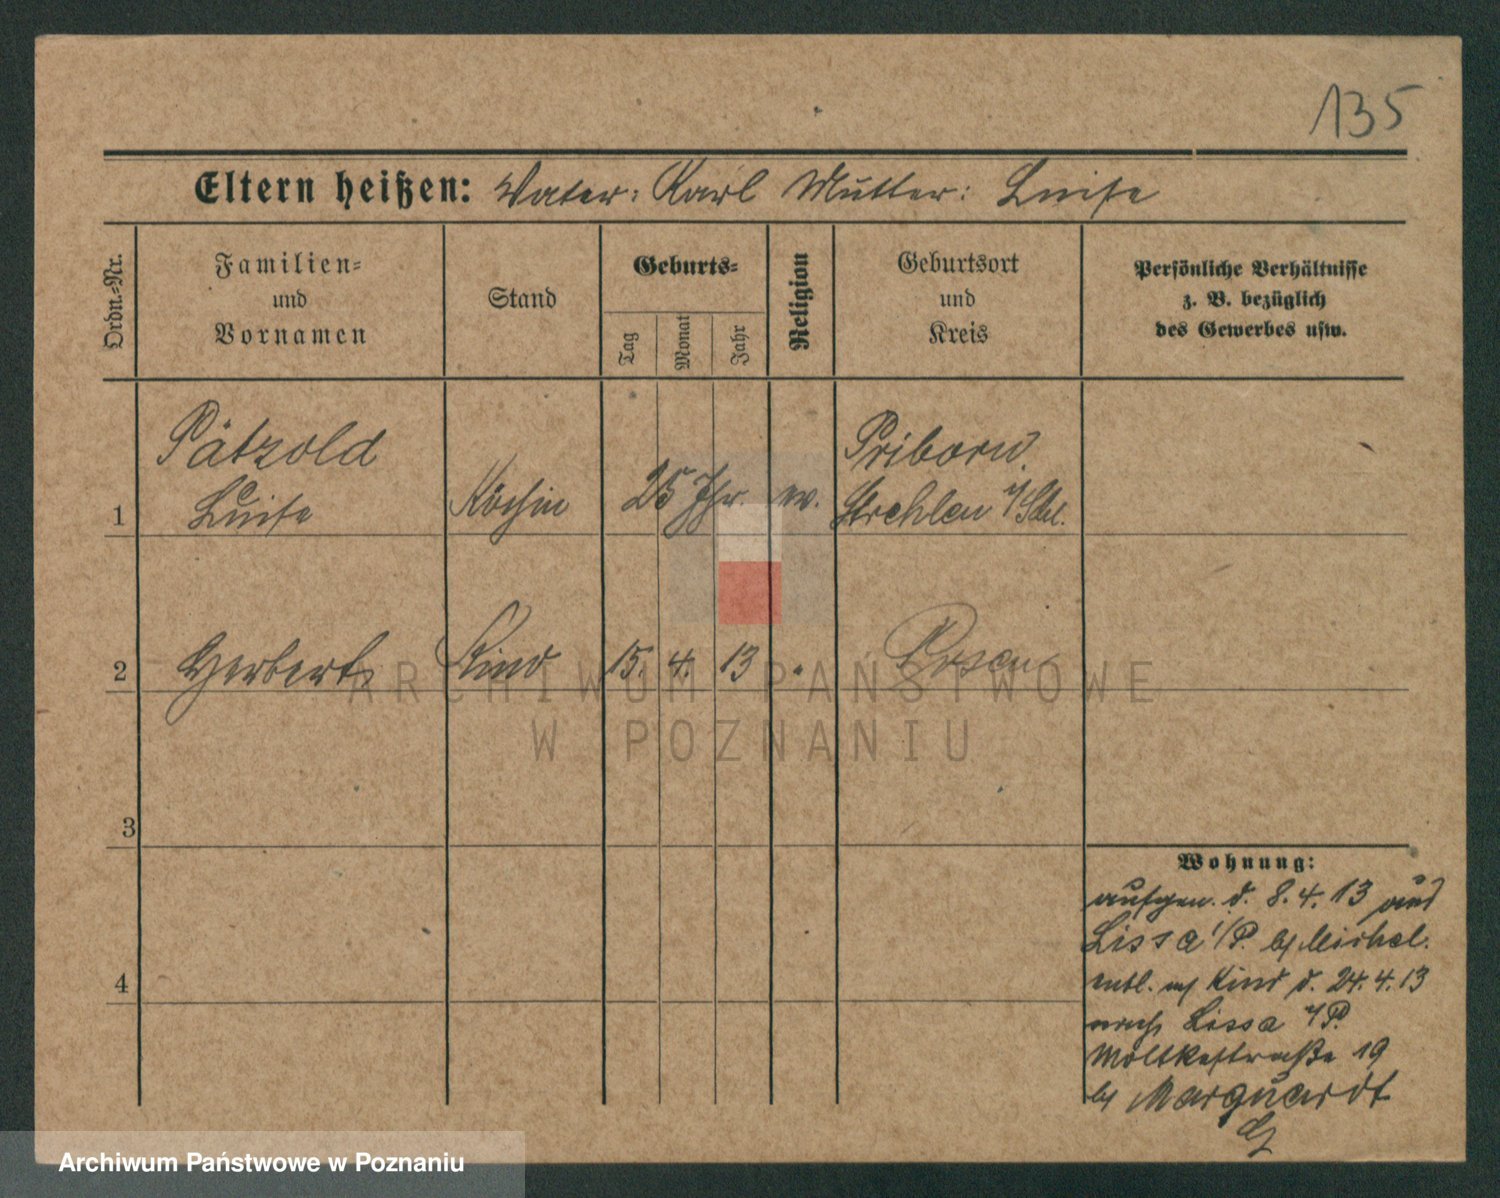 135
Eltern heißen: Vater: Karl Mutter: Luise
Ordn.-Nr.
Familien-
und
Vornamen
Stand
Geburts-
Tag
Monat
Jahr
Religion
Geburtsort
und
Kreis
Persönliche Verhältnisse
z. B. bezüglich
des Gewerbes usw.
Pätzold
1 Luise Köchin 25 Jhr. ev.
Priborn
Strehlen i/Schl.
2 Herbert Kind 15. 4. 13 Posen
3
4
Wohnung:
aufgen. d. 8.4.13 aus
Lissa i/P. b/ Michel.
entl. m/ Kind d. 24.4.13
nach Lissa i/P.
Moltkestraße 19
b/ Marquardt
ARCHIWUM PAŃSTWOWE
W POZNANIU
Archiwum Państwowe w Poznaniu